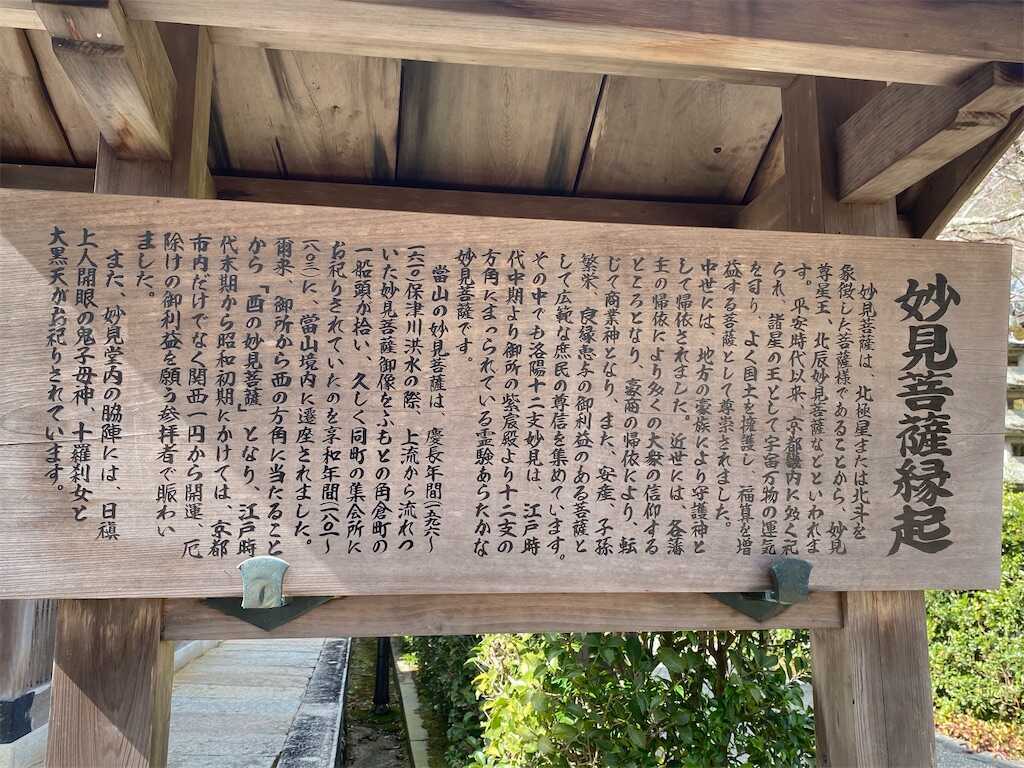 妙見菩薩縁起
妙見菩薩は、北極星または北斗を
象徴した菩薩様であることから、妙見
尊星王、北辰妙見菩薩などといわれま
す。平安時代以来、京都議内に多く祀
られ、諸星の王として宇宙万物の運気
を司り、よく国土を擁護し、福算を増
益する菩薩として尊崇されました。
中世には、地方の豪族により守護神と
して帰依されました。近世には、各藩
主の帰依により多くの大衆の信仰する
ところとなり、豪商の帰依により、転
じて商業神となり、また、安産、子孫
繁栄、良縁恵与の御利益のある菩薩と
して広範な庶民の尊信を集めています。
その中でも洛陽十二支妙見は、江戸時
代中期より御所の紫宸殿より十二支の
方角にまつられている霊験あらたかな
妙見菩薩です。
當山の妙見菩薩は、慶長年間(一五九六〜
一六一〇)保津川洪水の際、上流から流れつ
いた妙見菩薩御像をふもとの角倉町の
一船頭が拾い、久しく同町の集会所に
お祀りされていたのを享和年間(一八〇一〜
一八〇三)に、當山境内に遷座されました。
爾来、御所から西の方角に当たること
から「酉の妙見菩薩」となり、江戸時
代末期から昭和初期にかけては、京都
市内だけでなく関西一円から開運、厄
除けの御利益を願う参拝者で賑わい
ました。
また、妙見堂内の脇陣には、日禛
上人開眼の鬼子母神、十羅刹女と
大黒天がお祀りされています。